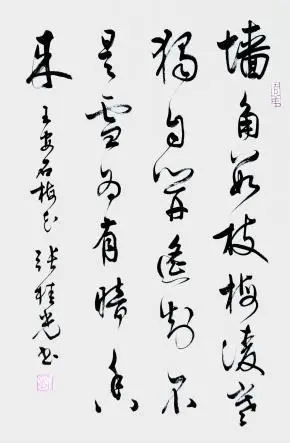 墙角数枝梅凌寒
独自开遥知不
是雪为有暗香
来
王安石梅花 张桂光书